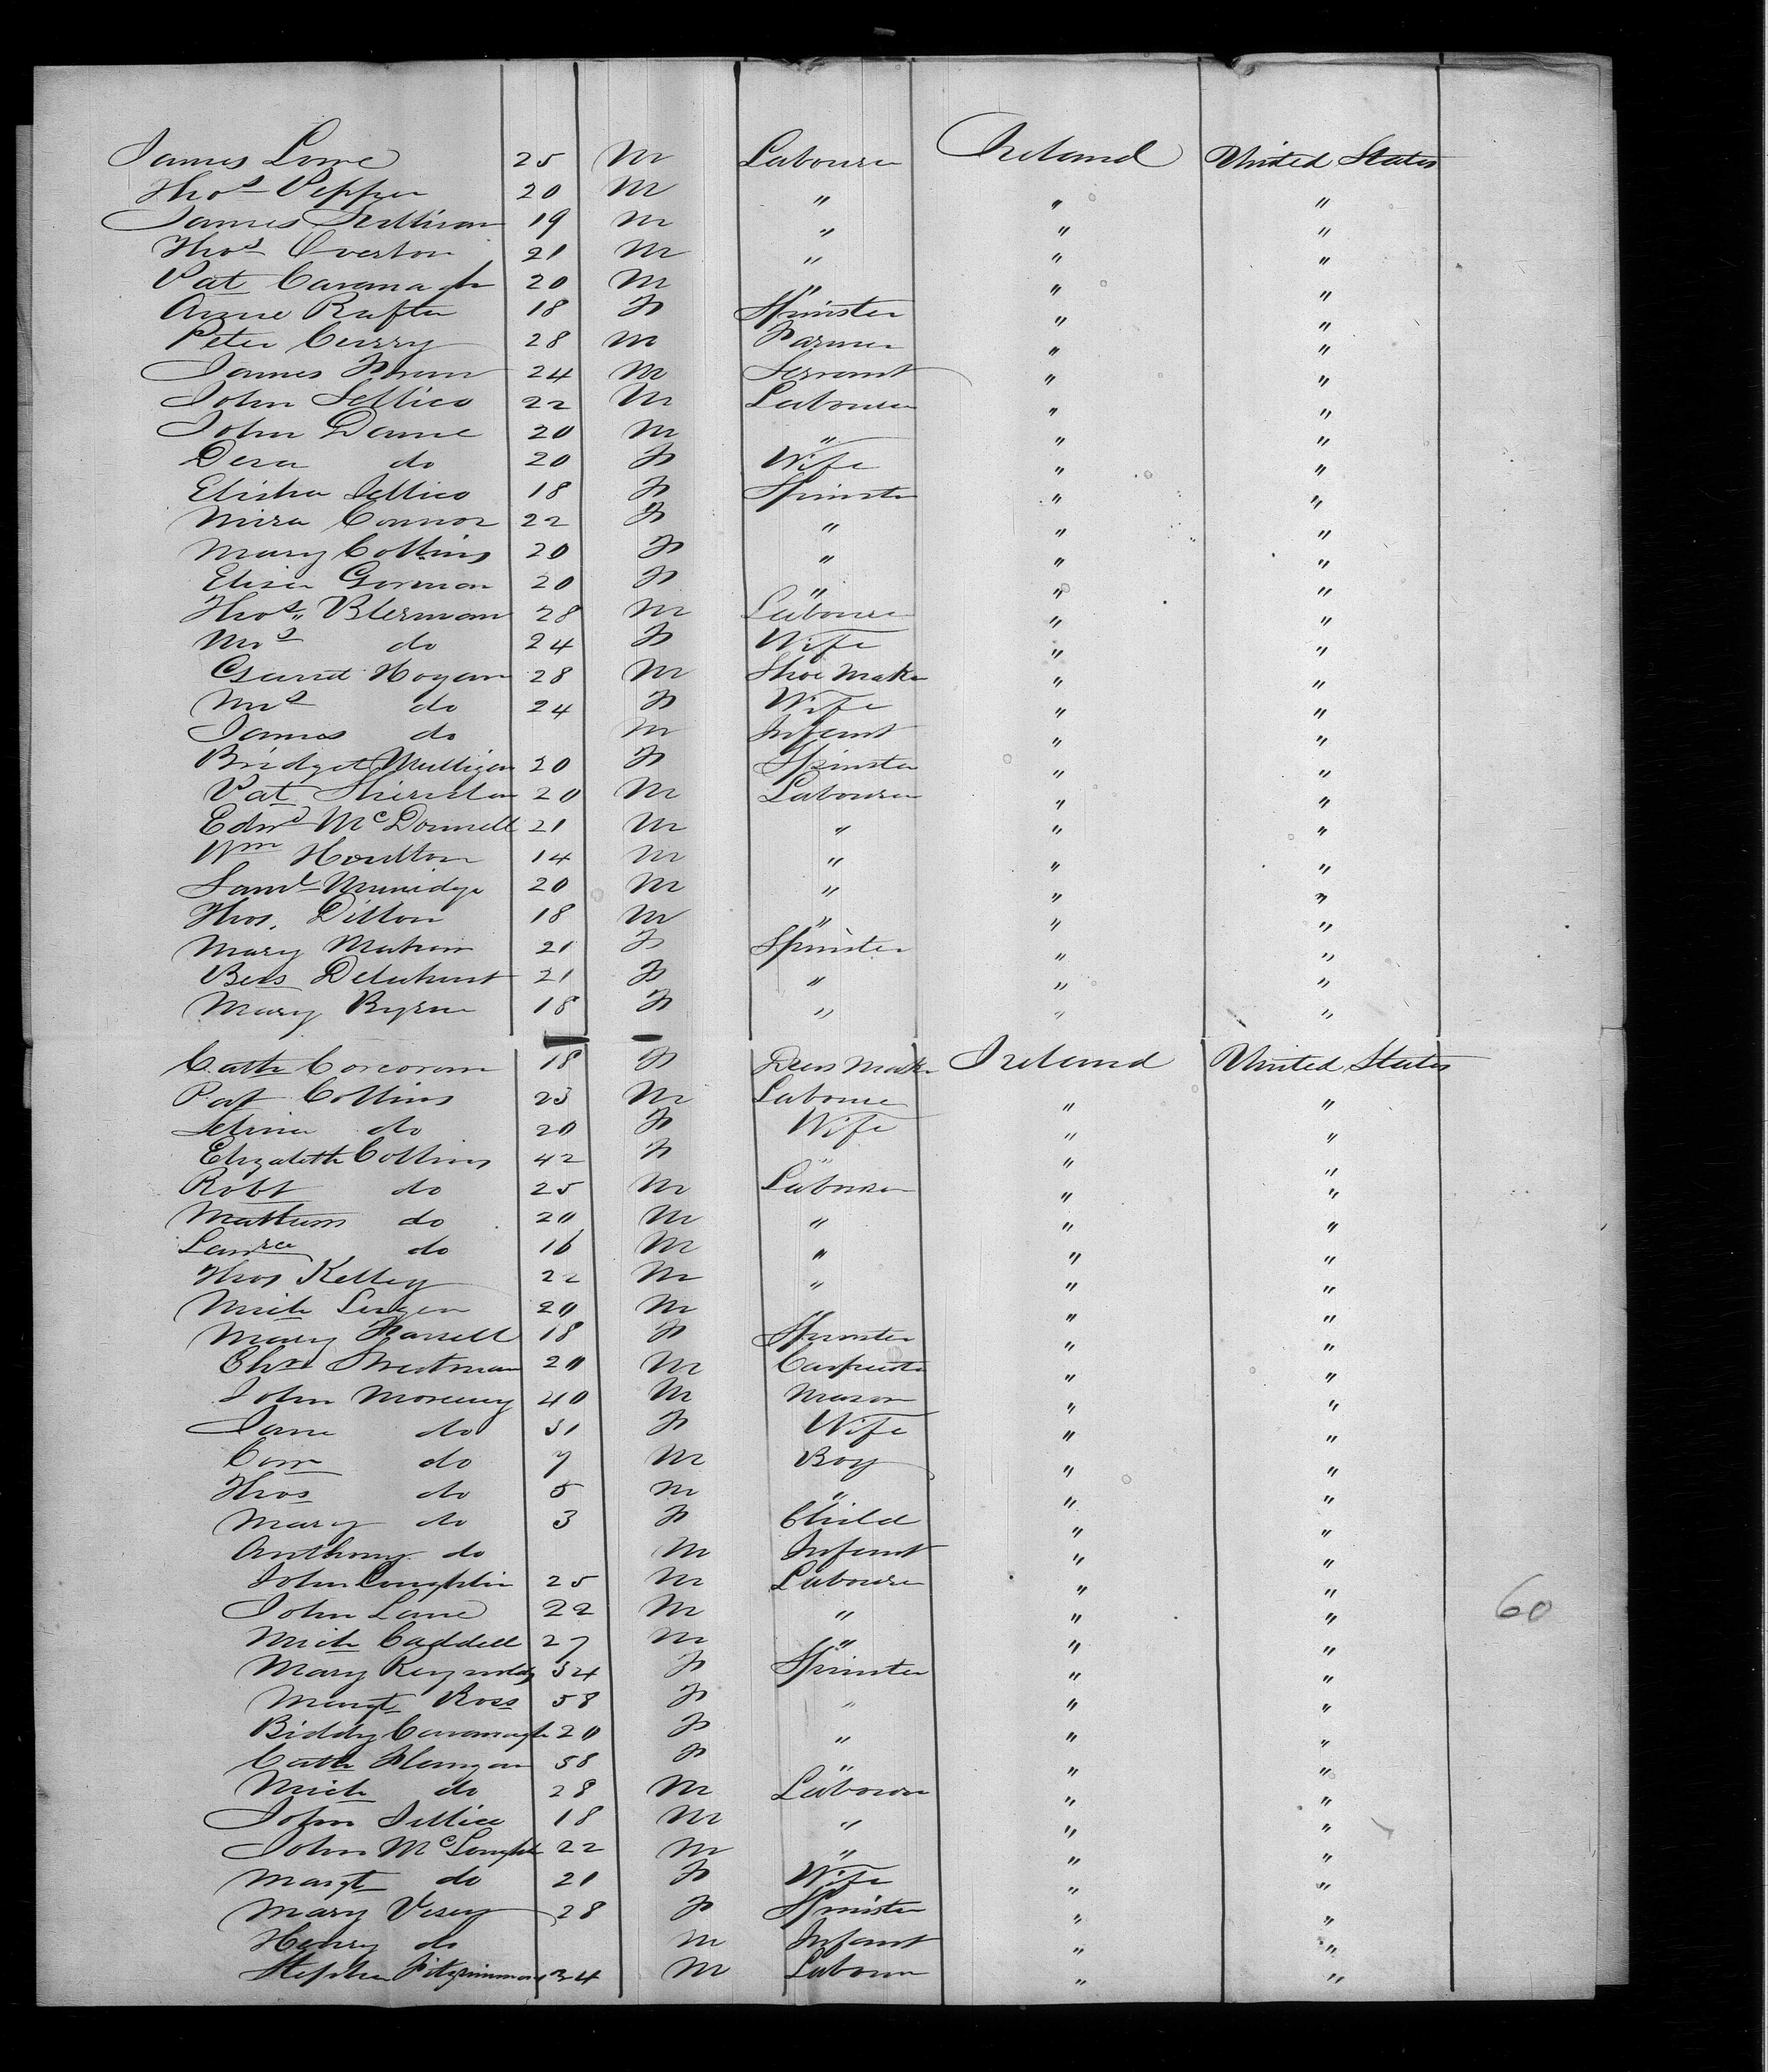 James Lowe 25 M Labourer Ireland United States
Thos Pepper 20 M " " "
James Sullivan 19 M " " "
Thos Overton 21 M " " "
Pat Cavanagh 20 M " " "
Anne Rafter 18 F Spinster " "
Peter Curry 28 M Farmer " "
James 24 M Servant " "
John Jellico 22 M Labourer " "
John Dame 20 M " " "
Dera do 20 F Wife " "
Elisha Jellico 18 F Spinster " "
Mira Connor 22 F " " "
Mary Collins 20 F " " "
Eliza Gorman 20 F " " "
Thos 28 M Labourer " "
Mrs do 24 F Wife " "
Garret Hogan 28 M Shoe Maker " "
Mrs do 24 F Wife " "
James do M Infant " "
Bridget Mulligan 20 F Spinster " "
Pat Sheridan 20 M Labourer " "
Edwd McDonnell 21 M " " "
Wm Houlton 14 M " " "
Saml 20 M " " "
Thos. Dillon 18 M " " "
Mary Mahon 21 F Spinster " "
Bess Delahunt 21 F " " "
Mary Byrne 18 F " " "
Cath Corcoran 18 F Dress Maker Ireland United States
Pat Collins 23 M Labourer " "
do 20 F Wife " "
Elizabeth Collins 42 F " " "
Robt do 25 M Labourer " "
Mathew do 20 M " " "
Lawrce do 16 M " " "
Thos Kelley 22 M " " "
Mich 20 M " "
Mary Farrell 18 F Spinster " "
20 M Carpenter " "
John 40 M Mason " "
Jane do 31 F Wife " "
do 7 M Boy " "
Thos do 5 M " " "
Mary do 3 F Child " "
Anthony do M Infant " "
John Coughlin 25 M Labourer " "
John Lane 22 M " " "
Mich Caddell 27 M " " "
Mary Reynolds 34 F Spinster " "
Margt Ross 58 F " " "
Biddy Cavanagh 20 F " " "
Cath Flangan 58 F " " "
Mich do 28 M Labourer " "
John Jellico 18 M " " "
John McLoughln 22 M " " "
Margt do 21 F Wife " "
Mary Vesey 28 F Spinster " "
Henry do M Infant " "
Stephen Fitzsimmons 34 M Labourer " "
60